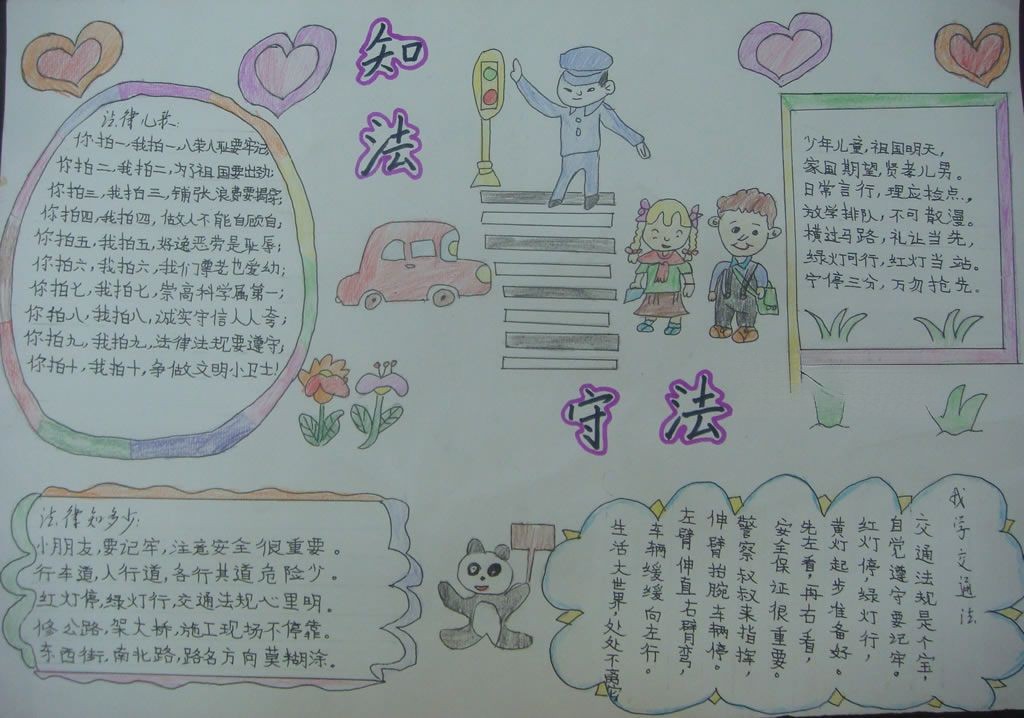 知法
守法
法律儿歌:
你拍一,我拍一,八荣八耻要牢记;
你拍二,我拍二,为了祖国要出劲;
你拍三,我拍三,铺张浪费要揭穿;
你拍四,我拍四,做人不能自欺自;
你拍五,我拍五,好逸恶劳是耻辱;
你拍六,我拍六,我们尊老也爱幼;
你拍七,我拍七,崇高科学属第一;
你拍八,我拍八,诚实守信人人夸;
你拍九,我拍九,法律法规要遵守;
你拍十,我拍十,争做文明小卫士!
少年儿童,祖国明天,
家国期望,贤孝儿男。
日常言行,理应检点。
放学排队,不可散漫。
横过马路,礼让当先,
绿灯可行,红灯当站。
宁停三分,万勿抢先。
法律知多少:
小朋友,要记牢,注意安全很重要。
行车道,人行道,各行其道危险少。
红灯停,绿灯行,交通法规心里明。
修公路,架大桥,施工现场不停靠。
东西街,南北路,路名方向莫糊涂。
我学交通法
交通法规是个宝,
自觉遵守要记牢。
红灯停,绿灯行,
黄灯起步准备好。
先左看,再右看,
安全保证很重要。
警察叔叔来指挥,
伸臂抬腕车辆停。
左臂伸直右臂弯,
车辆缓缓向左行。
生活大世界,处处不离